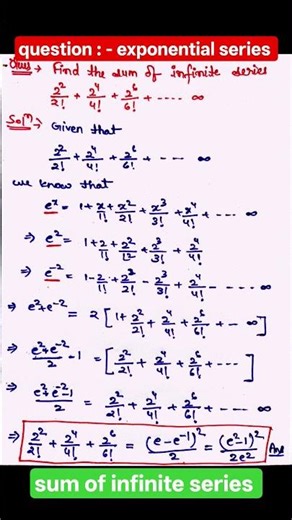 question : - exponential series
Ques → Find the sum of infinite series
2²/2! + 2⁴/4! + 2⁶/6! + ---- ∞
Solⁿ → Given that
2²/2! + 2⁴/4! + 2⁶/6! + --- ∞
we know that
eˣ = 1 + x/1! + x²/2! + x³/3! + x⁴/4! + ----
⇒ e² = 1 + 2/1! + 2²/12 + 2³/3! + 2⁴/4!
⇒ e⁻² = 1 - 2/1! + 2²/2! - 2³/3! + 2⁴/4! - ----
⇒ e² + e⁻² = 2 [ 1 + 2²/2! + 2⁴/4! + 2⁶/6! + -- ∞ ]
⇒ e² + e⁻²/2 - 1 = [ 2²/2! + 2⁴/4! + 2⁶/6! + --- ]
⇒ e² + e⁻² - 1/2 = 2²/2! + 2⁴/4! + 2⁶/6! + ---- ∞
⇒ 2²/2! + 2⁴/4! + 2⁶/6! = (e - e⁻¹)²/2 = (e² - 1)²/2e² Ans
sum of infinite series